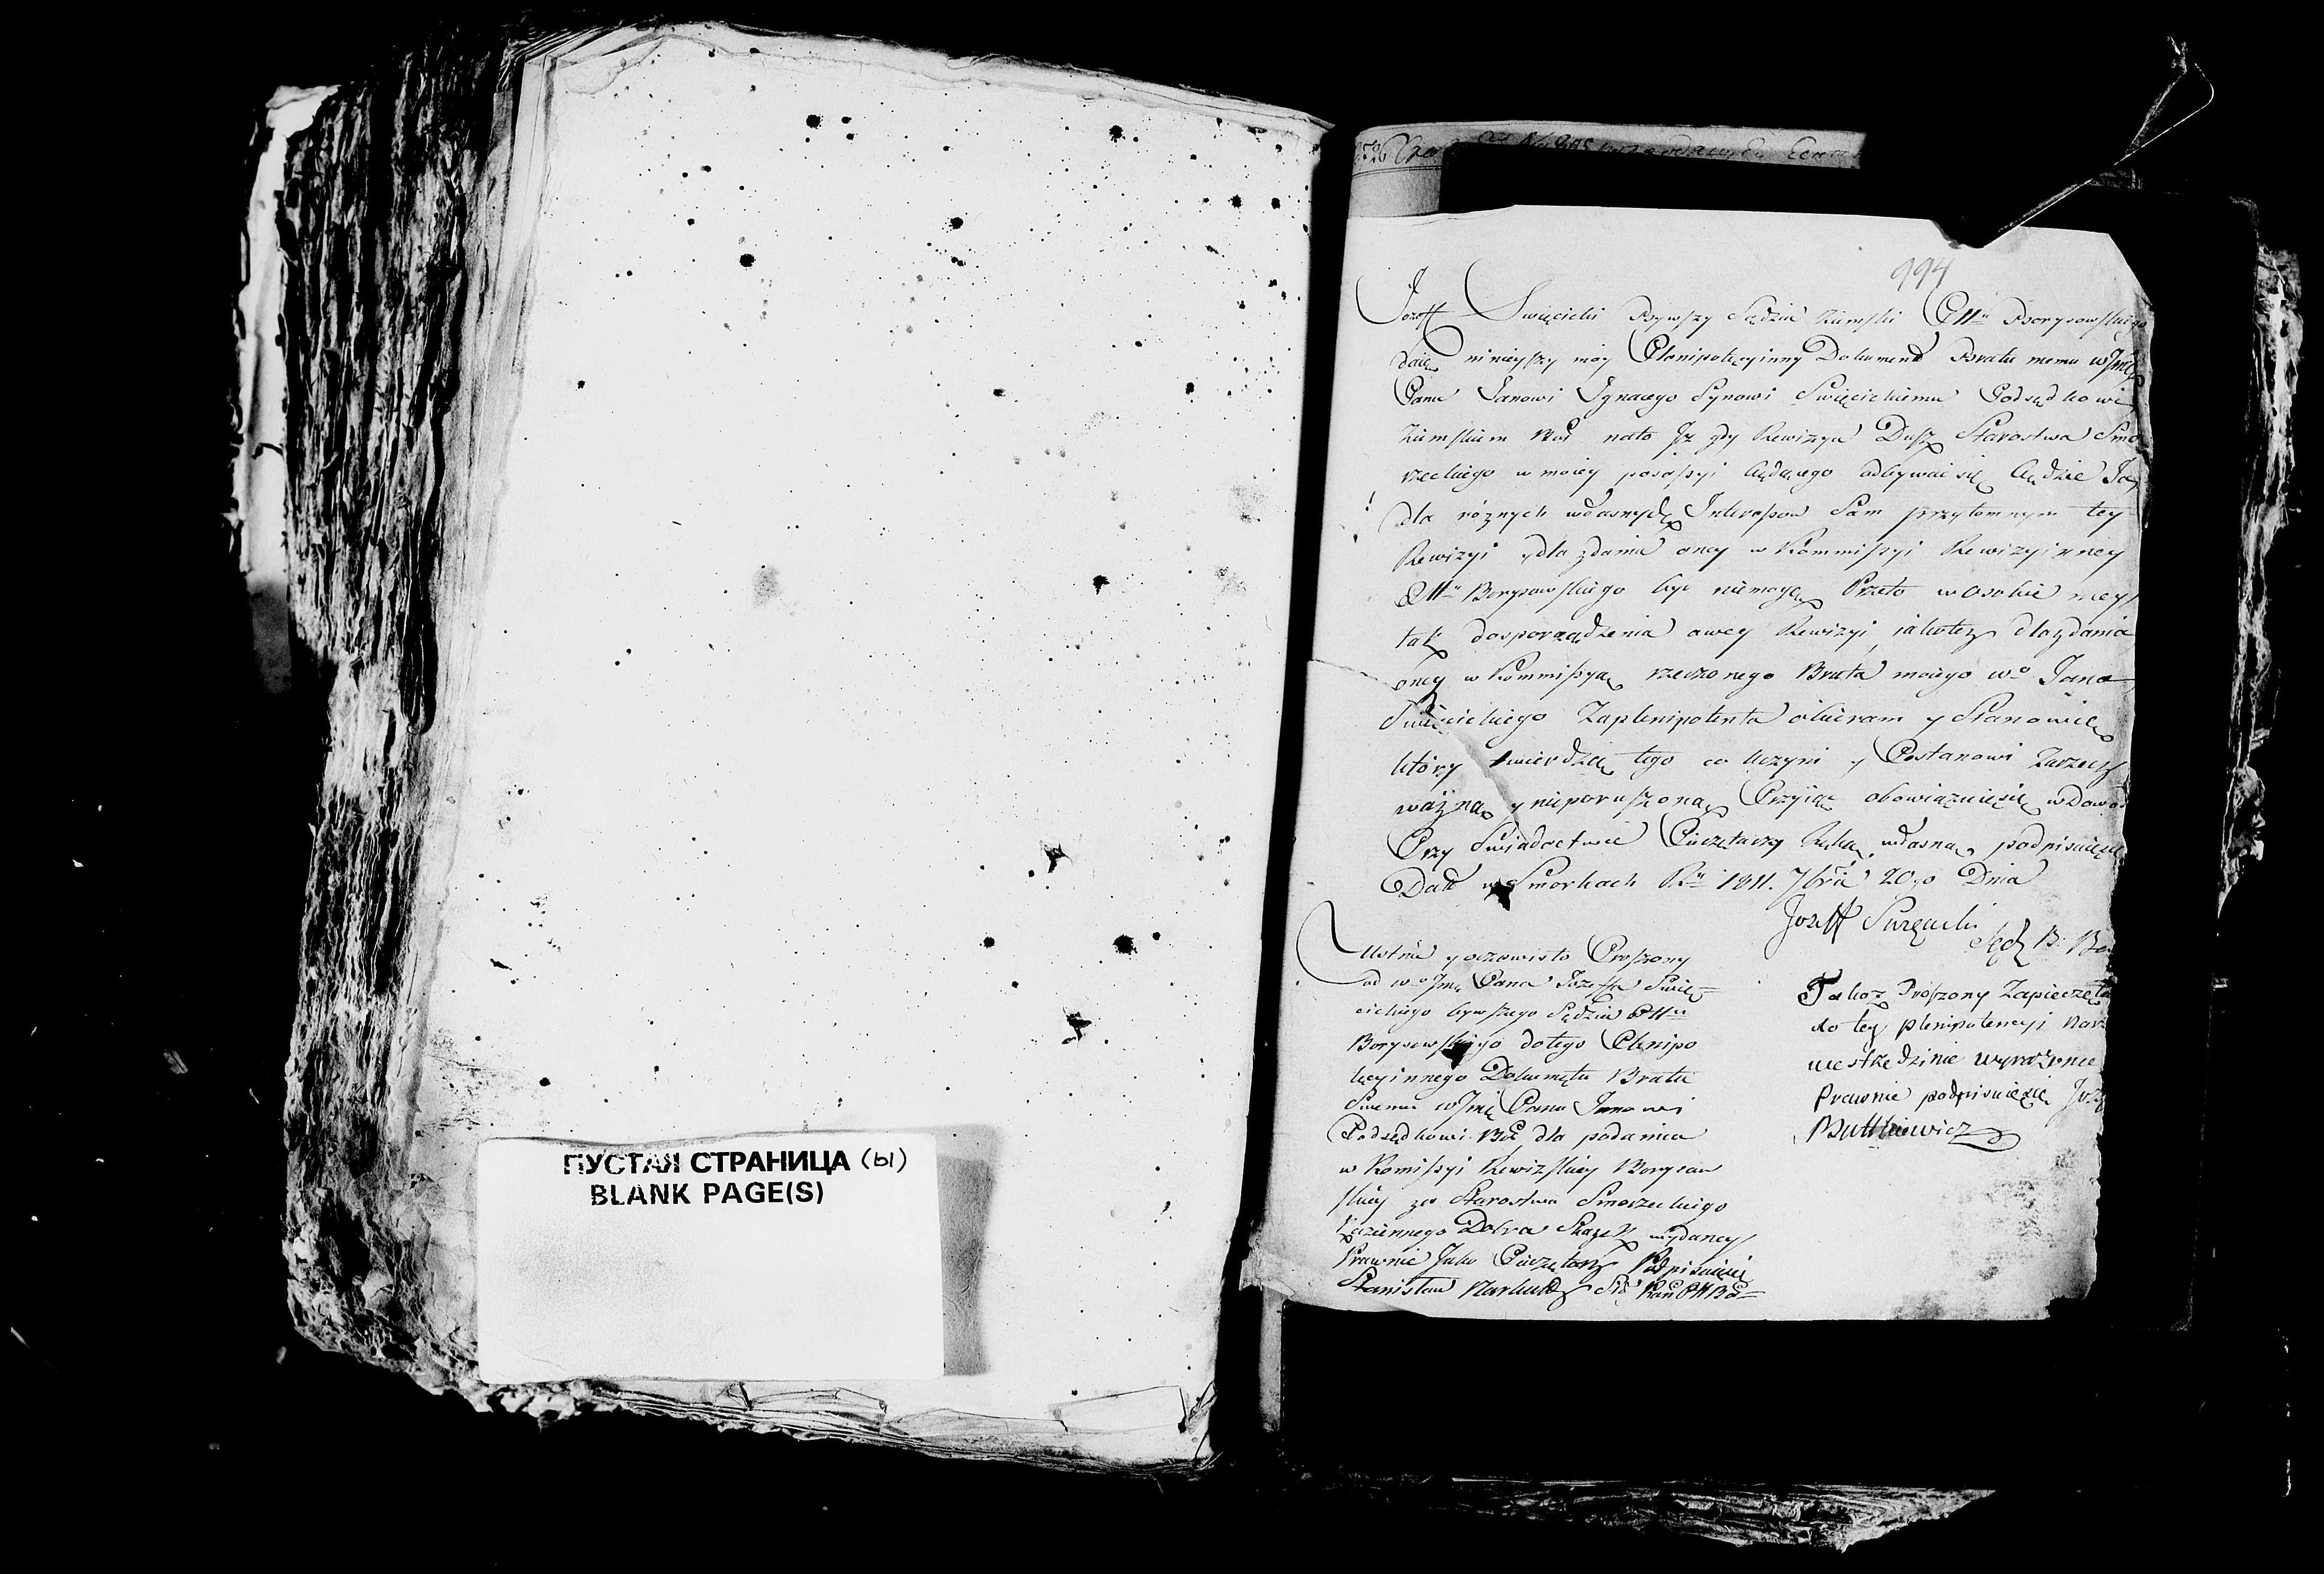 ПУСТАЯ СТРАНИЦА (ы)
BLANK PAGE(S)
994
Jozeff Swięcicki Bywszy Sędzia Ziemski Pttu Borysowskiego
daię ninieyszy moy Plenipotęcyinny Dokument Bratu memu
Panu Janowi Ignacego Synowi Swięcickiemu Podsędkowi
Ziemskiem nato Jz gdy Rewizya Dusz Starostwa Smo
rzeckiego w moiey posessyi będącego odbywać się będzie Ja
dla roznych własnych Interessow Sam przytomnym tey
Rewizyi y dla zdania oney w Kommissyi Rewizyinney
Pttu Borysowskiego być niemogę Przeto w osobie mey
tak dosporządzenia owey Rewizyi, jakotez dla zdania
oney w Kommissyą rzeczonego Brata moiego wo Jana
Swięcickiego Zaplenipotenta obieram y Stanowię
ktory twierdzę tego co uczyni y Postanowi Zarzecz
wazną y nieporuszoną Przyiąć obowiązuięsię w Dowod
Przy Swiadectwie Pieczętarzy Ręką własną podpisuięsię
Datt w Smorkach Ru 1811. 7bra 20go Dnia
Jozeff Swięcicki
Sędz B.
Ustnie y oczewisto Proszony
od wo Jmę Pana Jozeffa Swię
cickiego bywszego Sędzia Pttu
Borysowskiego dotego Plenipo
tęcyinnego Dokumętu Bratu
Swemu wJmę Panu Janowi
Podsędkowi dla podania
w Komissyi Rewizskiey Borysow
skiey ze Starostwa Smorzeckiego
Kaziennego Dobra Skazek wydaney
Prawnie Jako Pieczętarz Podpisuięsię
Stanisław
Takoz Proszony Zapieczęta
do tey plenipotencyi
wyrażone
Prawnie podpisuięsię
Buttkiewicz